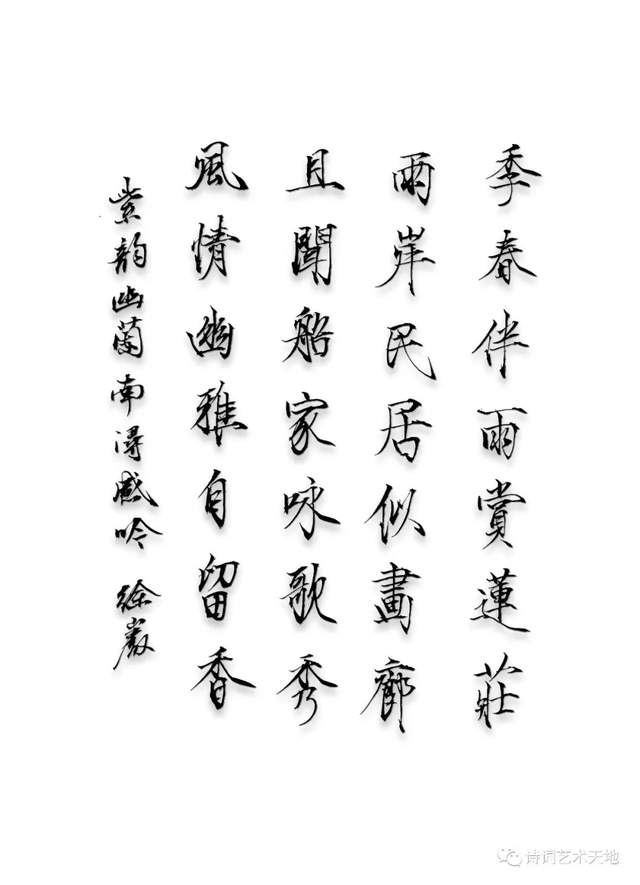 季春伴雨賞蓮莊
兩岸民居似畫廊
且聞船家咏歌秀
風情幽雅自留香
紫韵幽蘭南潯感吟 徐巖
诗词艺术天地